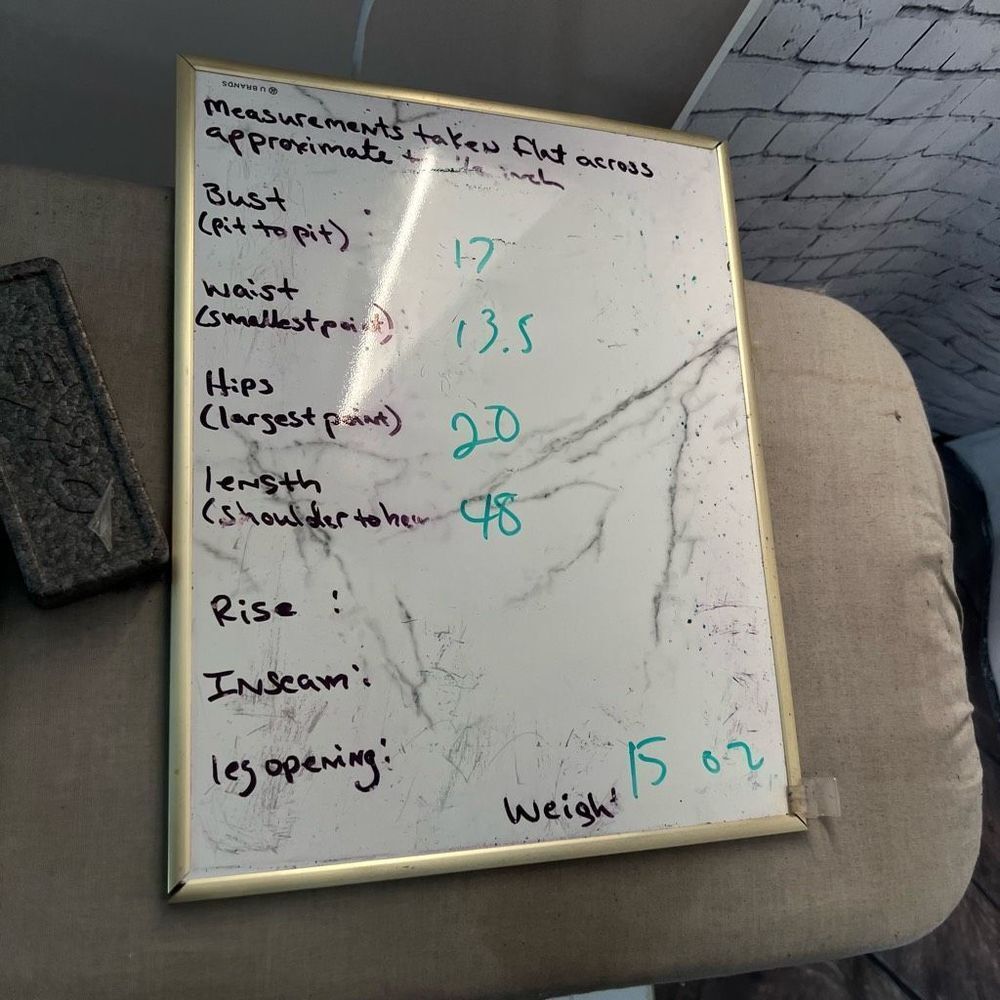 U BRANDS
Measurements taken flat across
approximate inch
Bust
(pit to pit) :
17
waist
(smallest point) :
13.5
Hips
(largest point)
20
length
(shoulder to hem
48
Rise :
Inseam :
leg opening :
15 oz
Weight